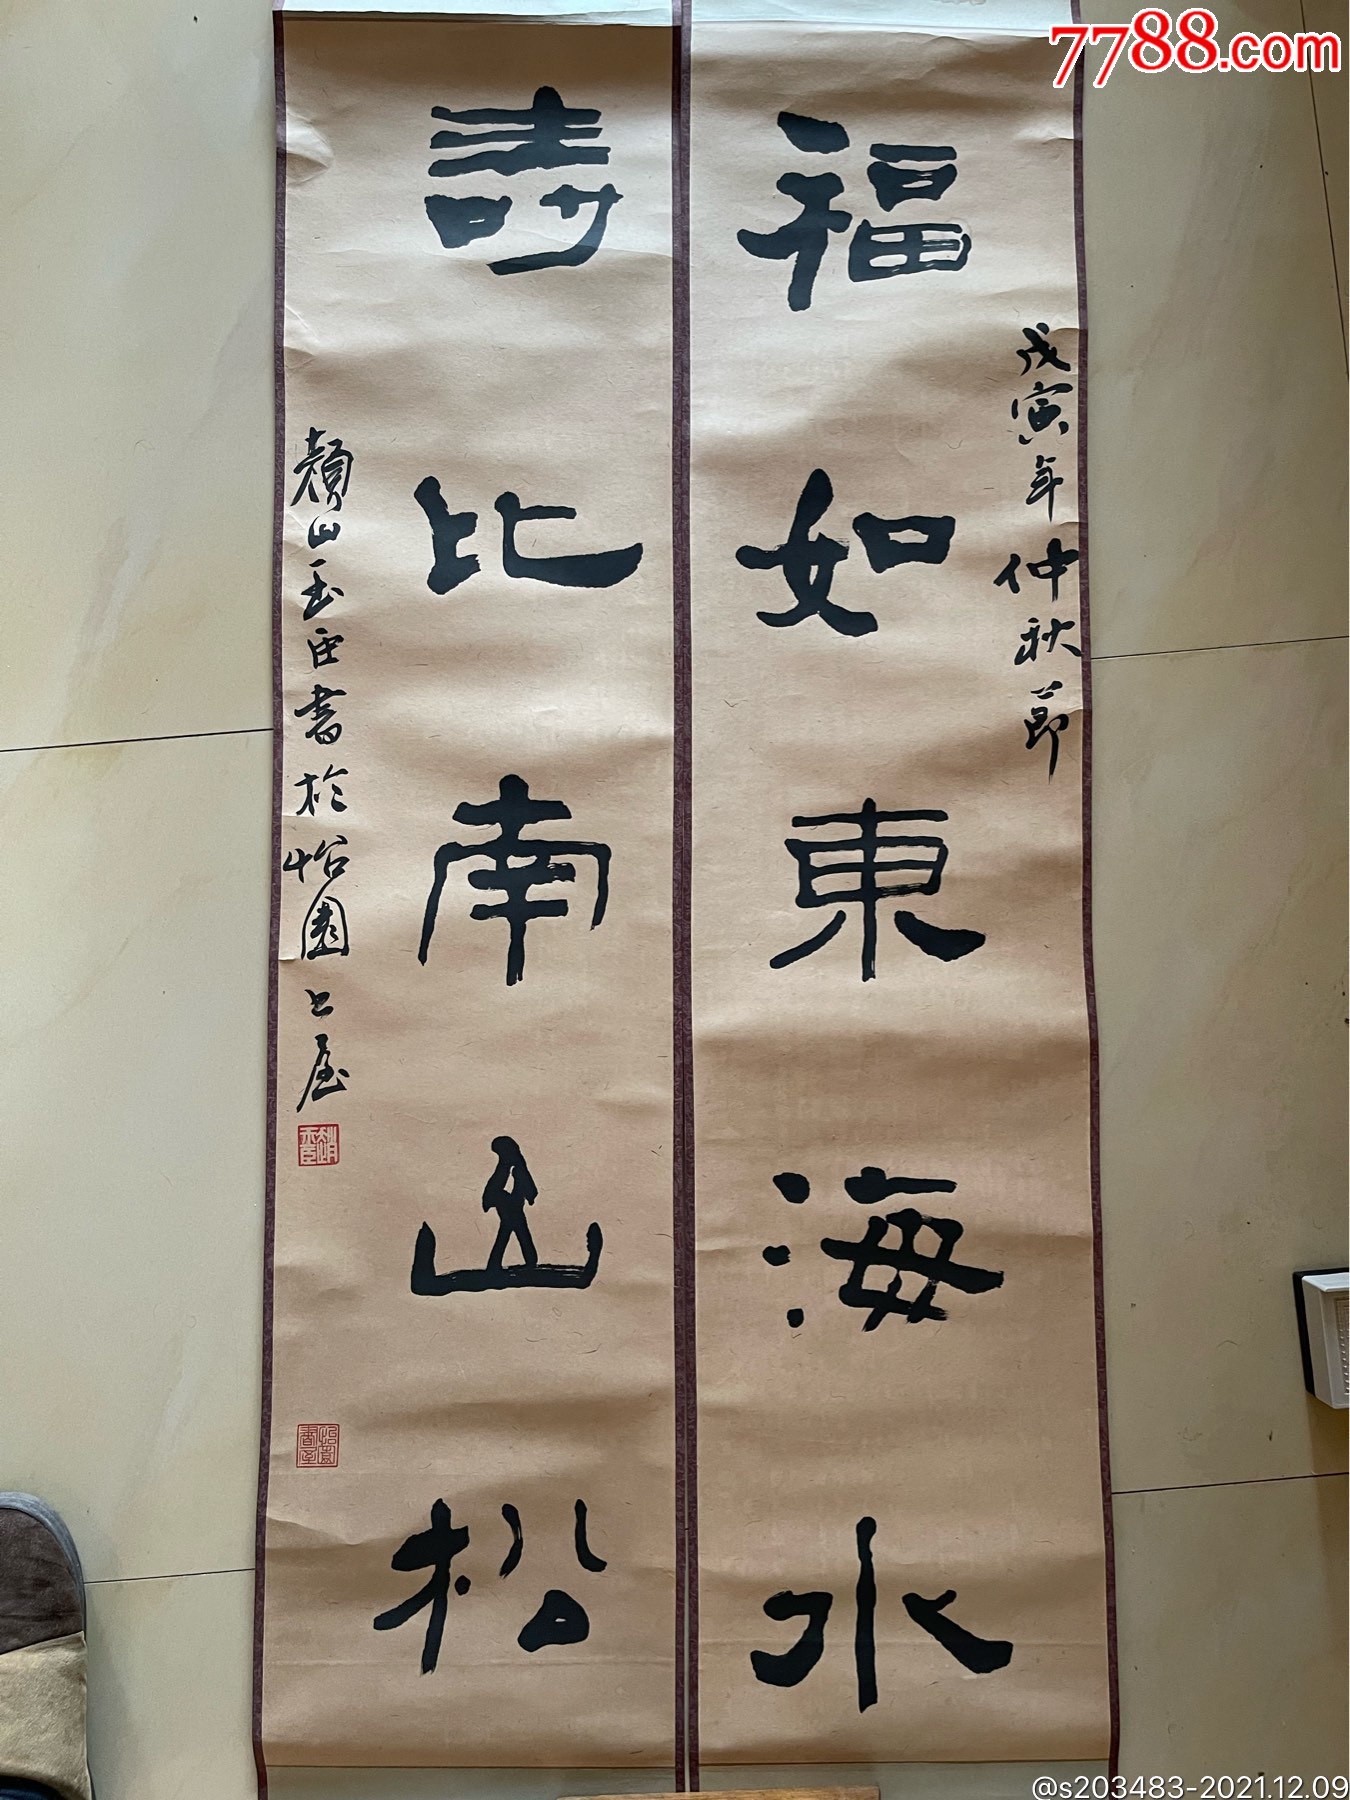 7788.com
福如東海水
戊寅年仲秋節
壽比南山松
山玉臣書於怡園書屋
怡園書屋
@s203483-2021.12.09